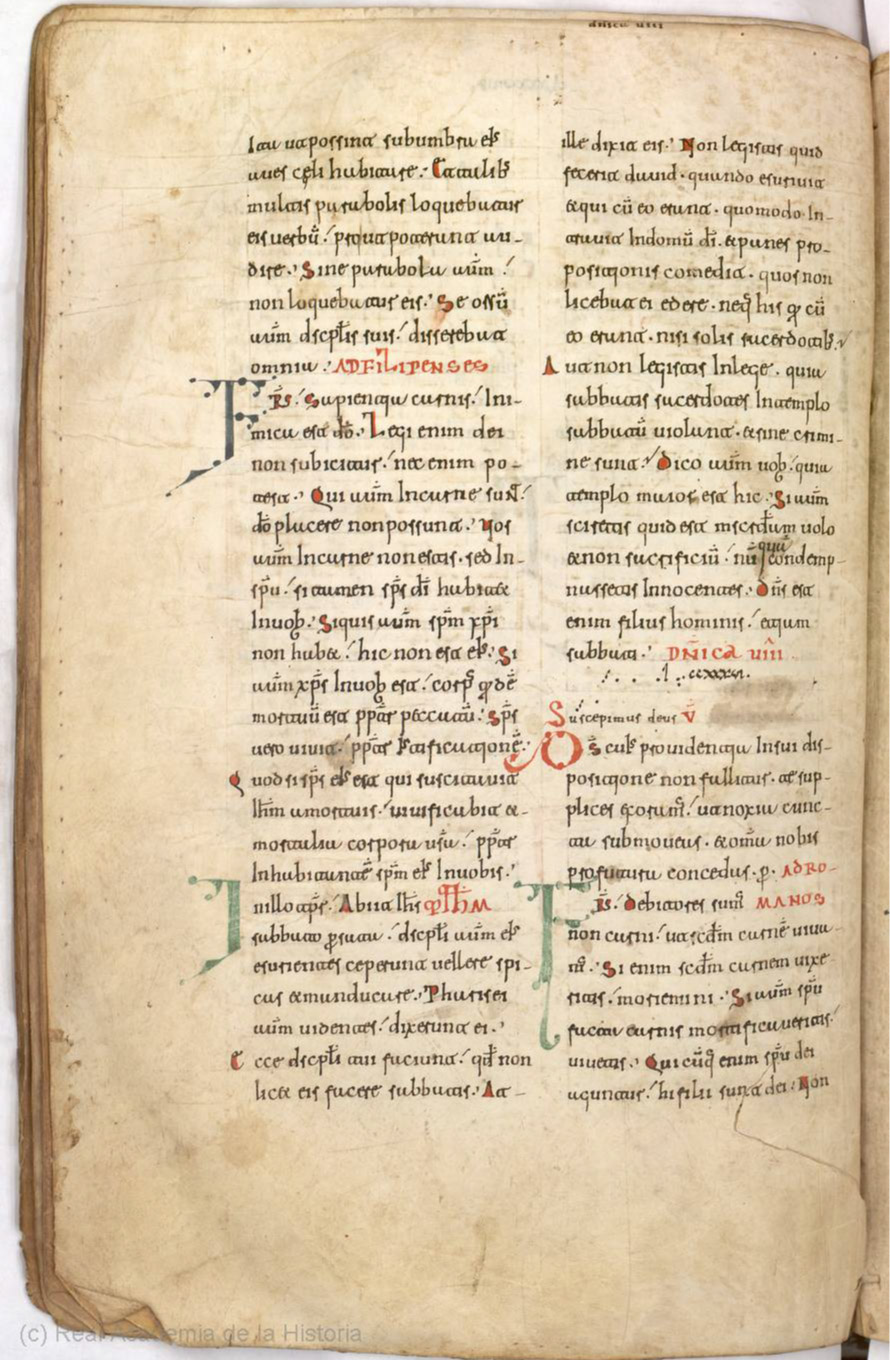 dnica uiii
ita ut possint sub umbra eiꝰ
aues cęli habitare. Et talibꝰ
multis parabolis loquebatur
eis uerbū. prout poterunt au-
dire. Sine parabola aūm
non loquebatur eis. Se orsū
aūm discplīs suis. disserebat
omnia. AD FILIPENSES
FRS. Sapientia carnis. Ini-
mica est dō. Legi enim dei
non subicitur. nec enim po-
test. Qui aūm In carne sun̄t.
dō placere non possunt. Uos
aūm In carne non estis. sed In-
spū. si tamen sp̄s dī habitet
In uob̄. Siquis aūm sp̄m xp̄i
non habet. hic non est eiꝰ. Si
aūm xp̄s In uob̄ est. corp̄ qdē
mortuū est pp̄ter peccatū. sp̄s
uero uiuit. pp̄ter Iustificationē.
Quod si sp̄s eiꝰ est qui suscitauit
Ihm a mortuis. uiuificabit et-
mortalia corpora ur̄a. pp̄ter
Inhabitantē sp̄m eiꝰ In uobis.
In illo tp̄r. Abiit Ihs MTHM
sabbato p sata. discplī aūm eiꝰ
esurientes ceperunt uellere spi-
cas et manducare. Pharisei
aūm uidentes. dixerunt ei.
Ecce discplī tui faciunt. qd non
licet eis facere sabbatis. At-
ille dixit eis. Non legistis quid
fecerit dauid. quando esuriuit
et qui cū eo erant. quomodo In-
trauit In domū dī. et panes pro-
positionis comedit. quos non
licebat ei edere. neq his q cū
eo erant. nisi solis sacerdotibꝰ.
Aut non legistis In lege. quia
sabbatis sacerdotes In templo
sabbatū uiolant. et sine crimi-
ne sunt. Dico aūm uob̄. quia
templo maior est hic. Si aūm
sciretis quid est miscdiam uolo
et non sacrificiū. nūqua condemp-
nassetis Innocentes. Dn̄s est
enim filius hominis. etiam
sabbati. DN̄ICA UIII
Suscepimus deus V
DS cuiꝰ prouidentia In sui dis-
positione non fallitur. te sup-
plices exoram̄. ut noxia cunc-
ta submoueas. et omīa nobis
profutura concedas. p. AD RO-
FRS. Debitores sum̄ MANOS
non carni. ut scdm carnē uiua-
m̄. Si enim scdm carnem uixe
ritis. moriemini. Si aūm spū
facta carnis mortificaueritis.
uiuetis. Quicūq enim spū dei
aguntur. hi filii sunt dei. Non
(c) Real Academia de la Historia